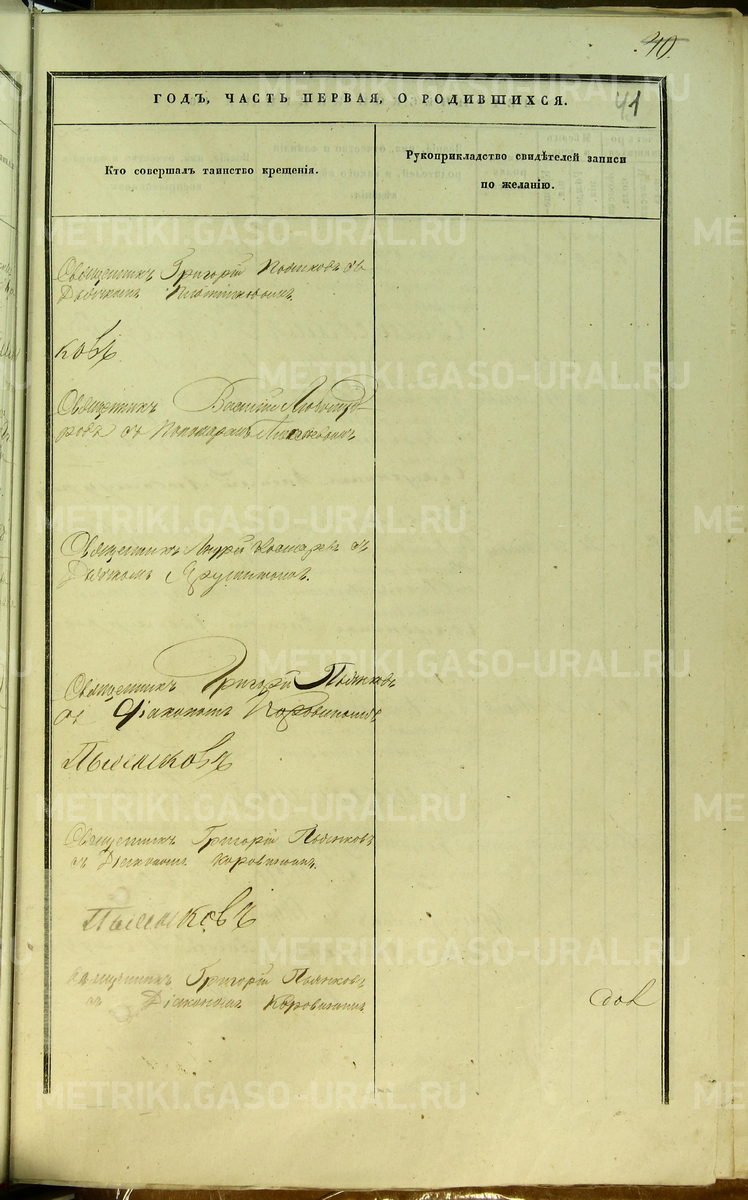 40.
41
ГОДЪ, ЧАСТЬ ПЕРВАЯ, О РОДИВШИХСЯ.
Кто совершалъ таинство крещенія.
Рукоприкладство свидѣтелей записи
по желанію.
Священникъ Григорій Пьянковъ съ
Дьячкомъ
ковъ
Священникъ Василій
съ Пономаремъ
Священникъ Андрей съ
Дьячкомъ
Священникъ Григорій Пьянковъ
съ Діакономъ Коровинымъ
Пьянковъ
Священникъ Григорій Пьянковъ
съ Діакономъ Коровинымъ.
Пьянковъ
Священникъ Григорій Пьянковъ
съ Діакономъ Коровинымъ
METRIKI.GASO-URAL.RU